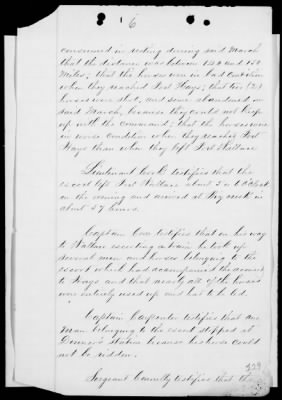 6
consumed in resting during said March
that the distance was between 150 and 150
Miles; that the horses were in bad condition
when they reached Fort Hays; that two (2)
horses were shot, and some abandoned on
said March, because they could not keep
up with the command; that the horses were
in worse condition when they reached Fort
Hays than when they left Fort Wallace.
Lieutenant Cook testifies that the
escort left Fort Wallace about 5 or 6 o'clock
in the evening and arrived at Big creek in
about 57 hours.
Captain Carr testifies that on his way
to Wallace escorting a train he took up
several men and horses belonging to the
escort which had accompanied the accused
to Hays and that nearly all of the horses
were entirely used up and had to be led.
Captain Carpenter testifies that one
man belonging to the escort stopped at
Downer's station because his horse could
not be ridden.
129
Sergeant Connelly testifies that the